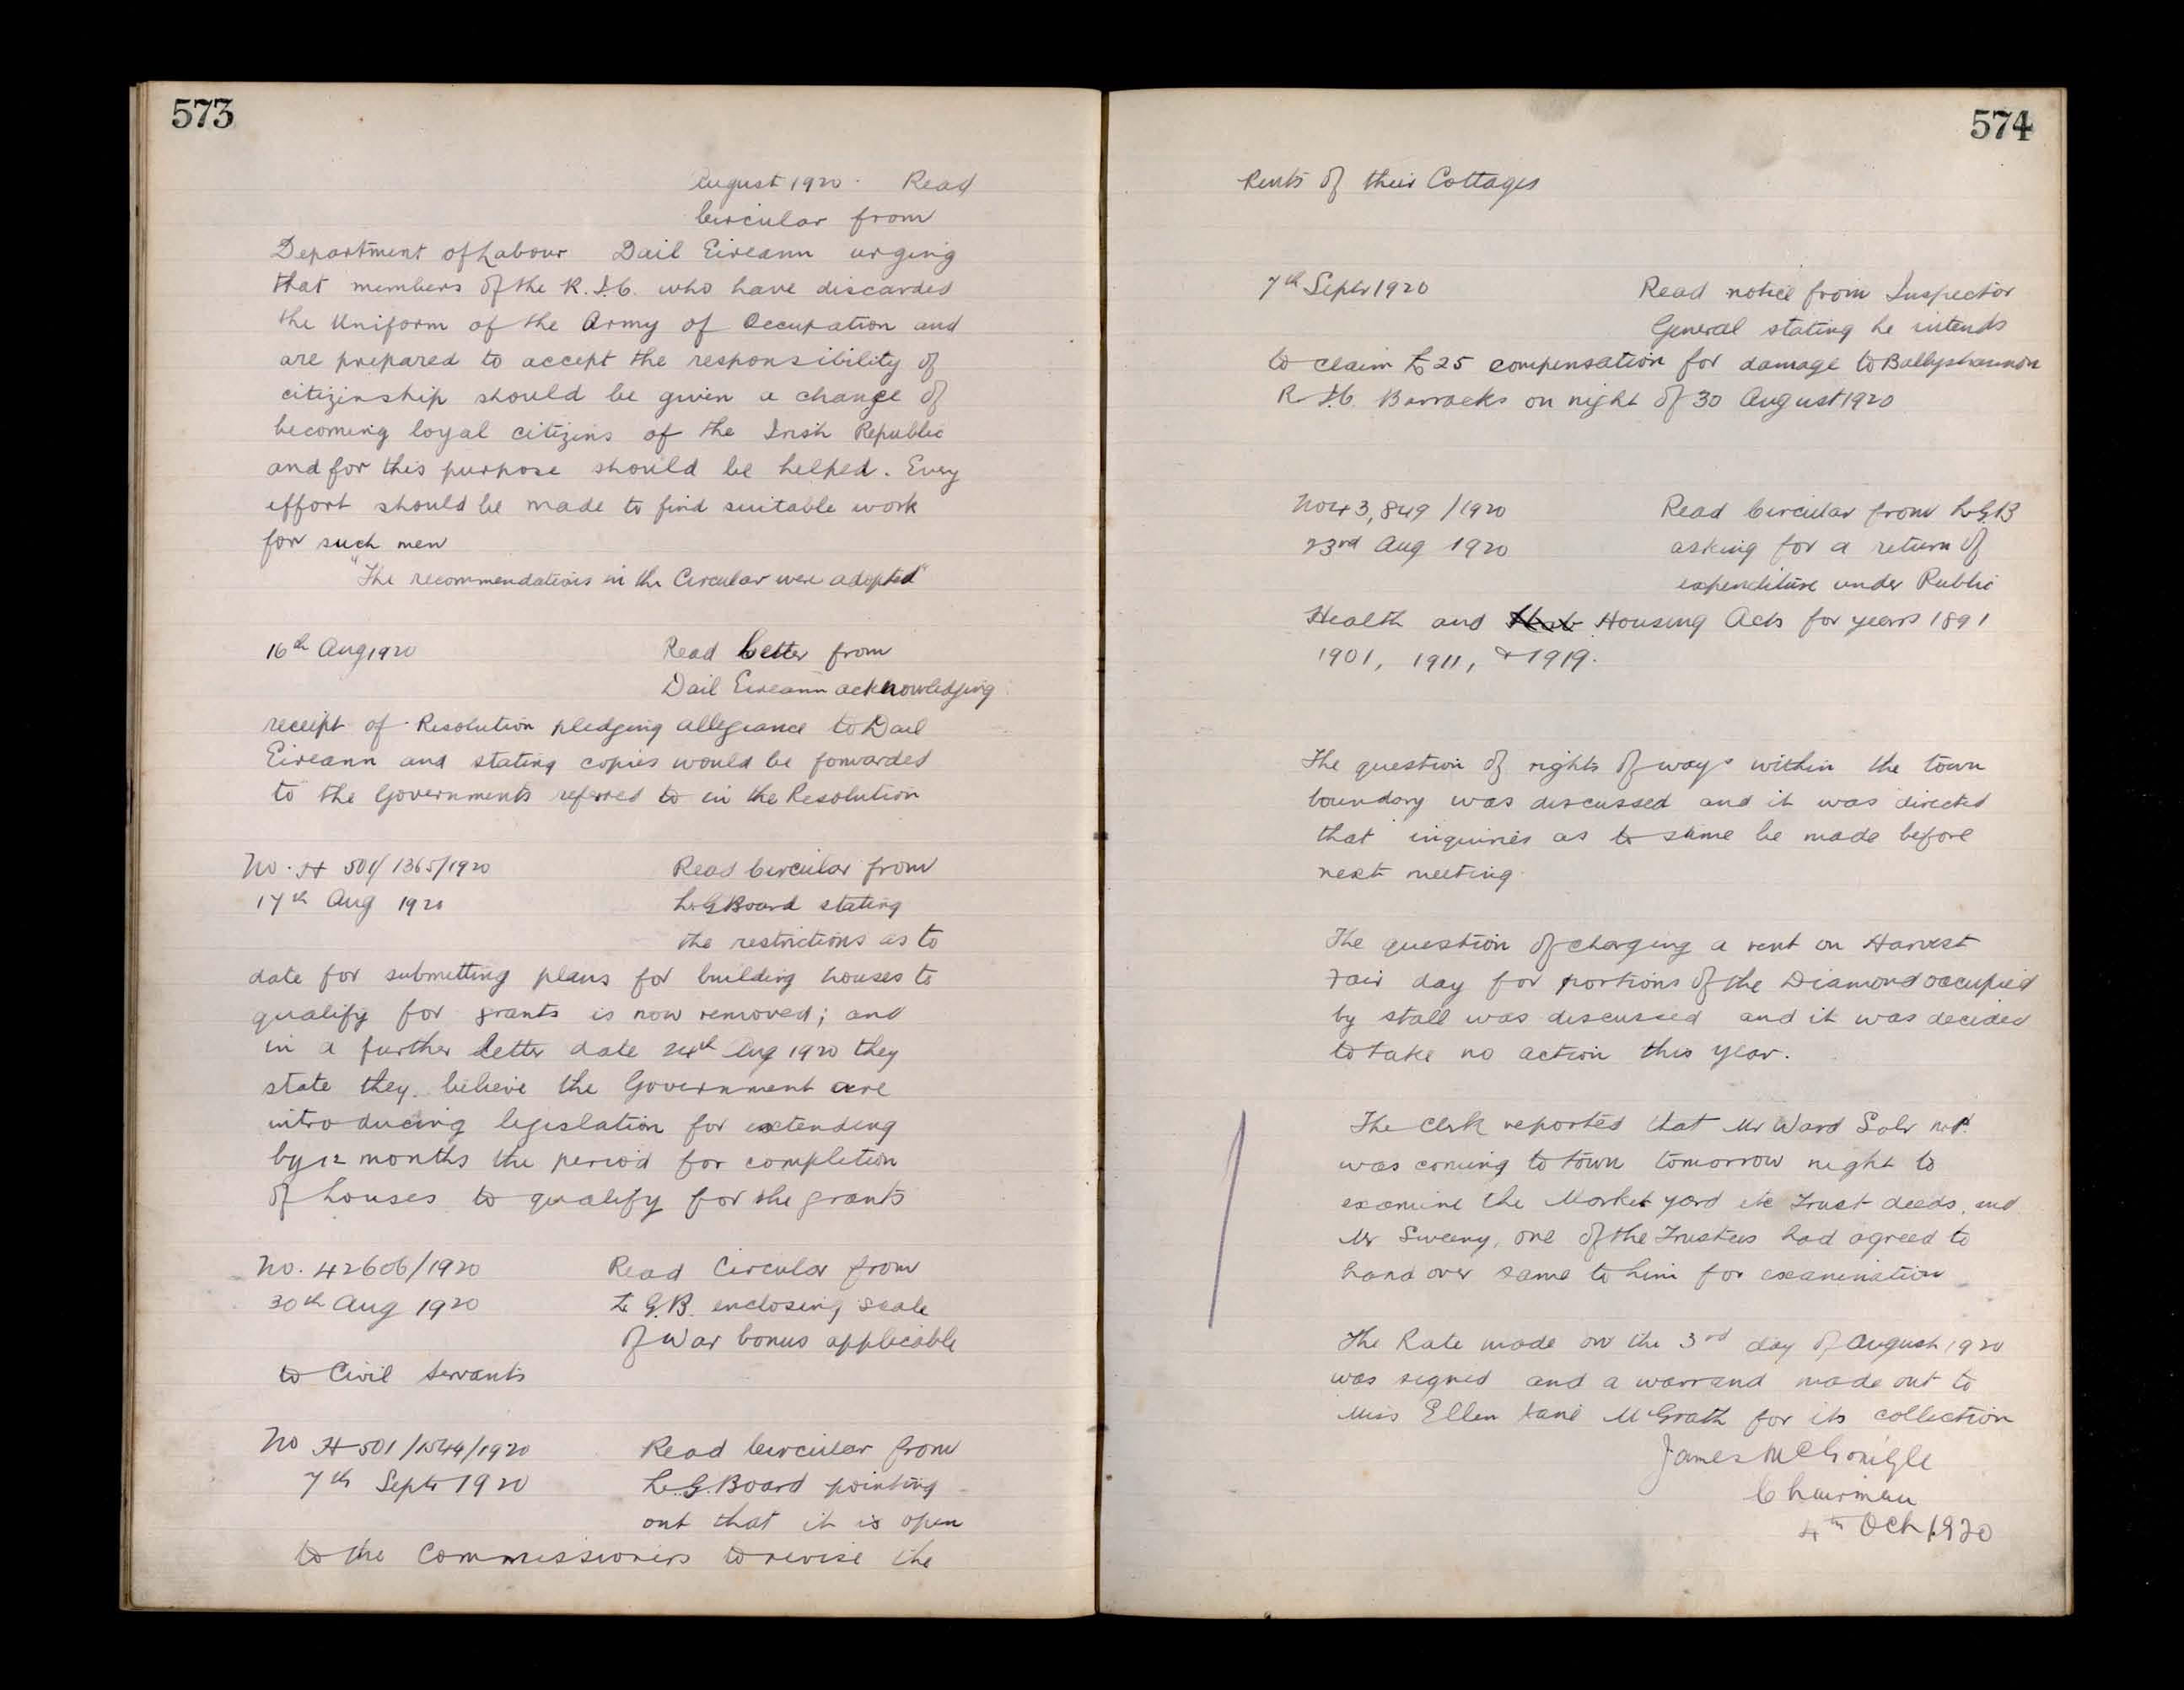 573
August 1920. Read
Circular from
Department of Labour Dail Eireann urging
that members of the R.I.C. who have discarded
the Uniform of the Army of Occupation and
are prepared to accept the responsibility of
citizenship should be given a change of
becoming loyal citizens of the Irish Republic
and for this purpose should be helped. Every
effort should be made to find suitable work
for such men
"The recommendations in the Circular were adopted"
16th Aug 1920 Read Letter from
Dail Eireann acknowledging
receipt of Resolution pledging allegiance to Dail
Eireann and stating copies would be forwarded
to the Governments referred to in the Resolution
No. H 501/1365/1920 Read Circular from
17th Aug 1920 L.G Board stating
the restrictions as to
date for submitting plans for building houses to
qualify for grants is now removed; and
in a further letter date 24th Aug 1920 they
state they believe the Government are
introducing legislation for extending
by 12 months the period for completion
of houses to qualify for the grants
No. 42606/1920 Read Circular from
30th Aug 1920 L.G.B. enclosing scale
of War bonus applicable
to Civil Servants
No H 501/1544/1920 Read Circular from
7th Septr 1920 L.G. Board pointing
out that it is open
to the Commissioners to revise the
574
Rents of their Cottages
7th Septr 1920 Read notice from Inspector
General stating he intends
to claim £25 compensation for damage to Ballyshannon
R.I.C. Barracks on night of 30 August 1920
No 43,849/1920 Read Circular from L.G.B
23rd Aug 1920 asking for a return of
expenditure under Public
Health and Housing Acts for years 1891
1901, 1911, & 1919.
The question of rights of ways within the town
boundary was discussed and it was directed
that inquiries as to same be made before
next meeting.
The question of charging a rent on Harvest
Fair day for portions of the Diamond occupied
by stall was discussed and it was decided
to take no action this year.
The Clerk reported that Mr Ward Solr
was coming to town tomorrow night to
examine the Market yard etc Trust deeds, and
Mr Sweeny, one of the Trustees had agreed to
hand over same to him for examination
The Rate made on the 3rd day of August 1920
was signed and a warrand made out to
Miss Ellen Jane McGrath for its collection
James McGonigle
Chairman
4th Oct 1920